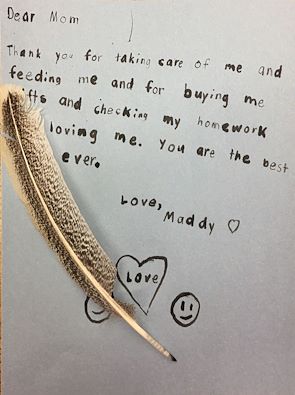 Dear Mom
Thank you for taking care of me and
feeding me and for buying me
ifts and checking my homework
loving me. You are the best
ever.
Love,
Maddy
Love